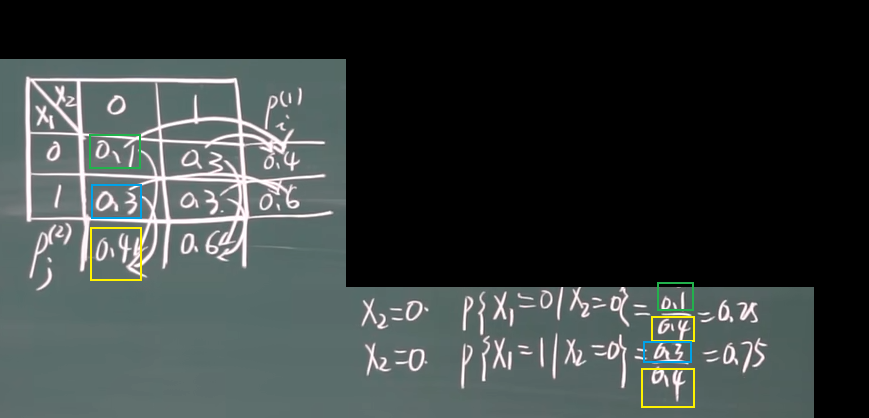 X₁ X₂ 0 1 pᵢ⁽¹⁾
0 0.1 0.3 0.4
1 0.3 0.3 0.6
pⱼ⁽²⁾ 0.4 0.6
X₂=0. P{X₁=0|X₂=0}=0.1/0.4=0.25
X₂=0. P{X₁=1|X₂=0}=0.3/0.4=0.75